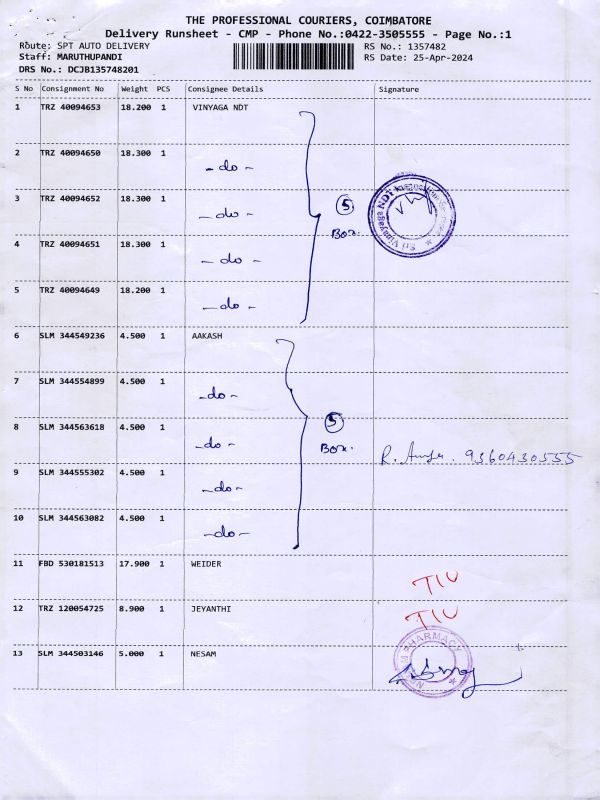 THE PROFESSIONAL COURIERS, COIMBATORE
Delivery Runsheet - CMP - Phone No.:0422-3505555 - Page No.:1
Route: SPT AUTO DELIVERY
RS No.: 1357482
Staff: MARUTHUPANDI
RS Date: 25-Apr-2024
DRS No.: DCJB135748201
S No Consignment No Weight PCS Consignee Details Signature
1 TRZ 40094653 18.200 1 VINYAGA NDT
2 TRZ 40094650 18.300 1 - do -
3 TRZ 40094652 18.300 1 - do -
5 Box.
Sri Vinayaga NDT
4 TRZ 40094651 18.300 1 - do -
5 TRZ 40094649 18.200 1 - do -
6 SLM 344549236 4.500 1 AAKASH
7 SLM 344554899 4.500 1 - do -
8 SLM 344563618 4.500 1 - do -
5 Box.
R. 9360430555
9 SLM 344555302 4.500 1 - do -
10 SLM 344563082 4.500 1 - do -
11 FBD 530181513 17.900 1 WEIDER
12 TRZ 120054725 8.900 1 JEYANTHI
13 SLM 344503146 5.000 1 NESAM
PHARMACY